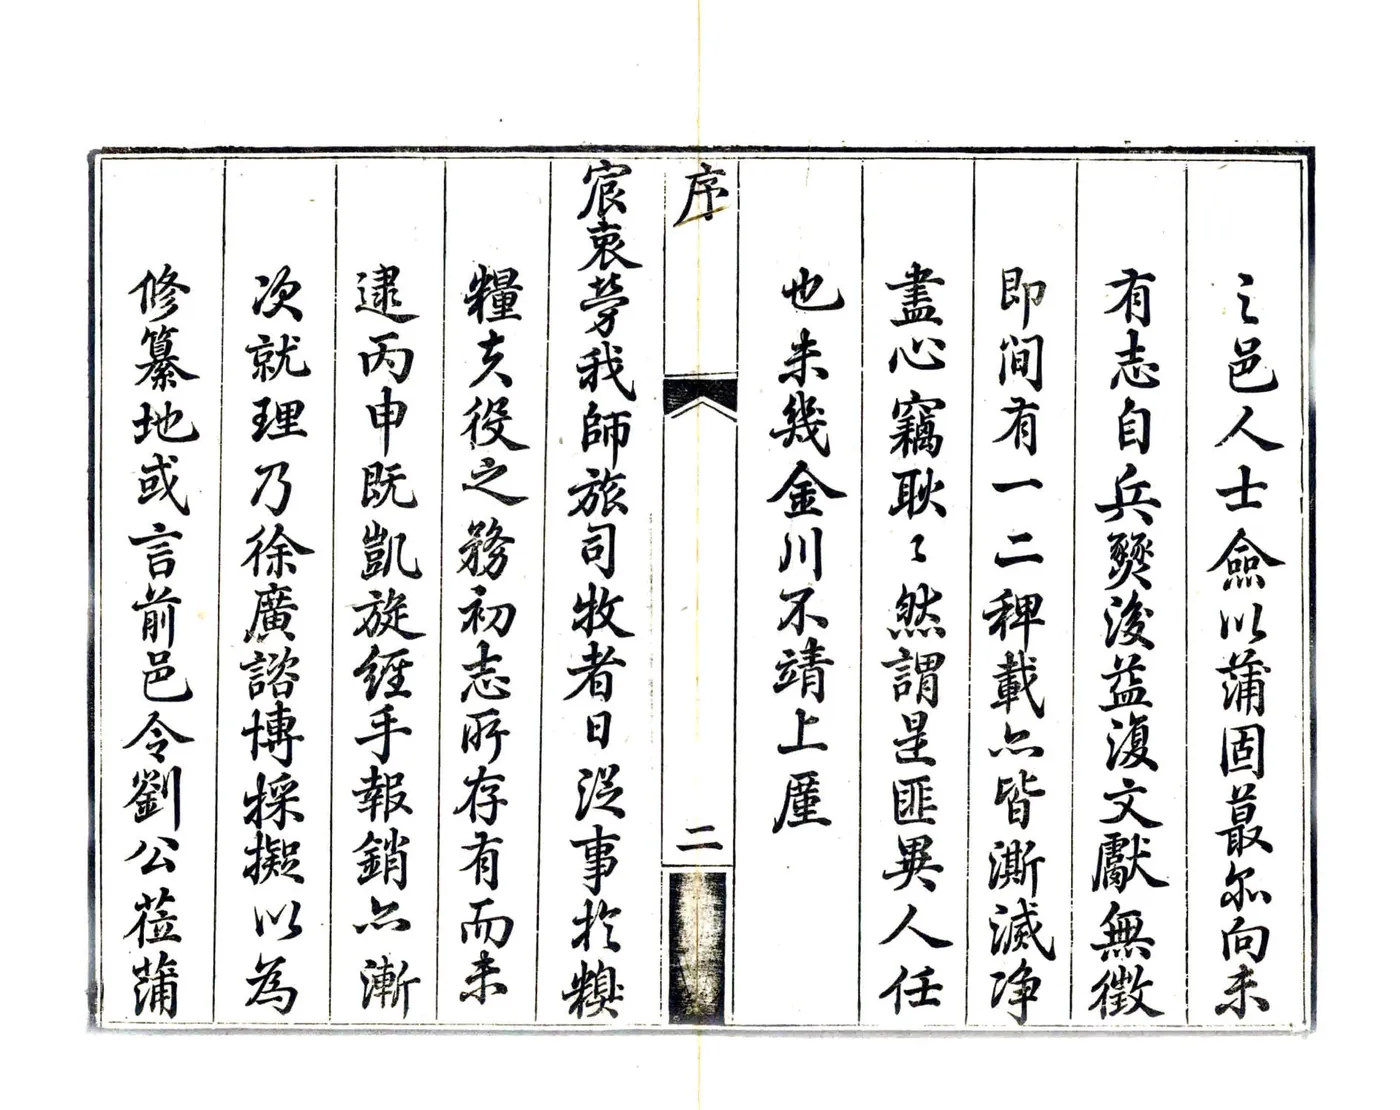 之邑人士僉以蒲固蕞尔向未
有志自兵燹後益復文獻無徵
即間有一二稗載亦皆澌滅净
盡心竊耿々然謂是匪異人任
也未幾金川不靖上厪
序
二
宸衷勞我師旅司牧者日從事於糗
糧夫役之務初志所存有而未
逮丙申既凱旋經手報銷亦漸
次就理乃徐廣諮博採擬以為
修纂地或言前邑令劉公莅蒲